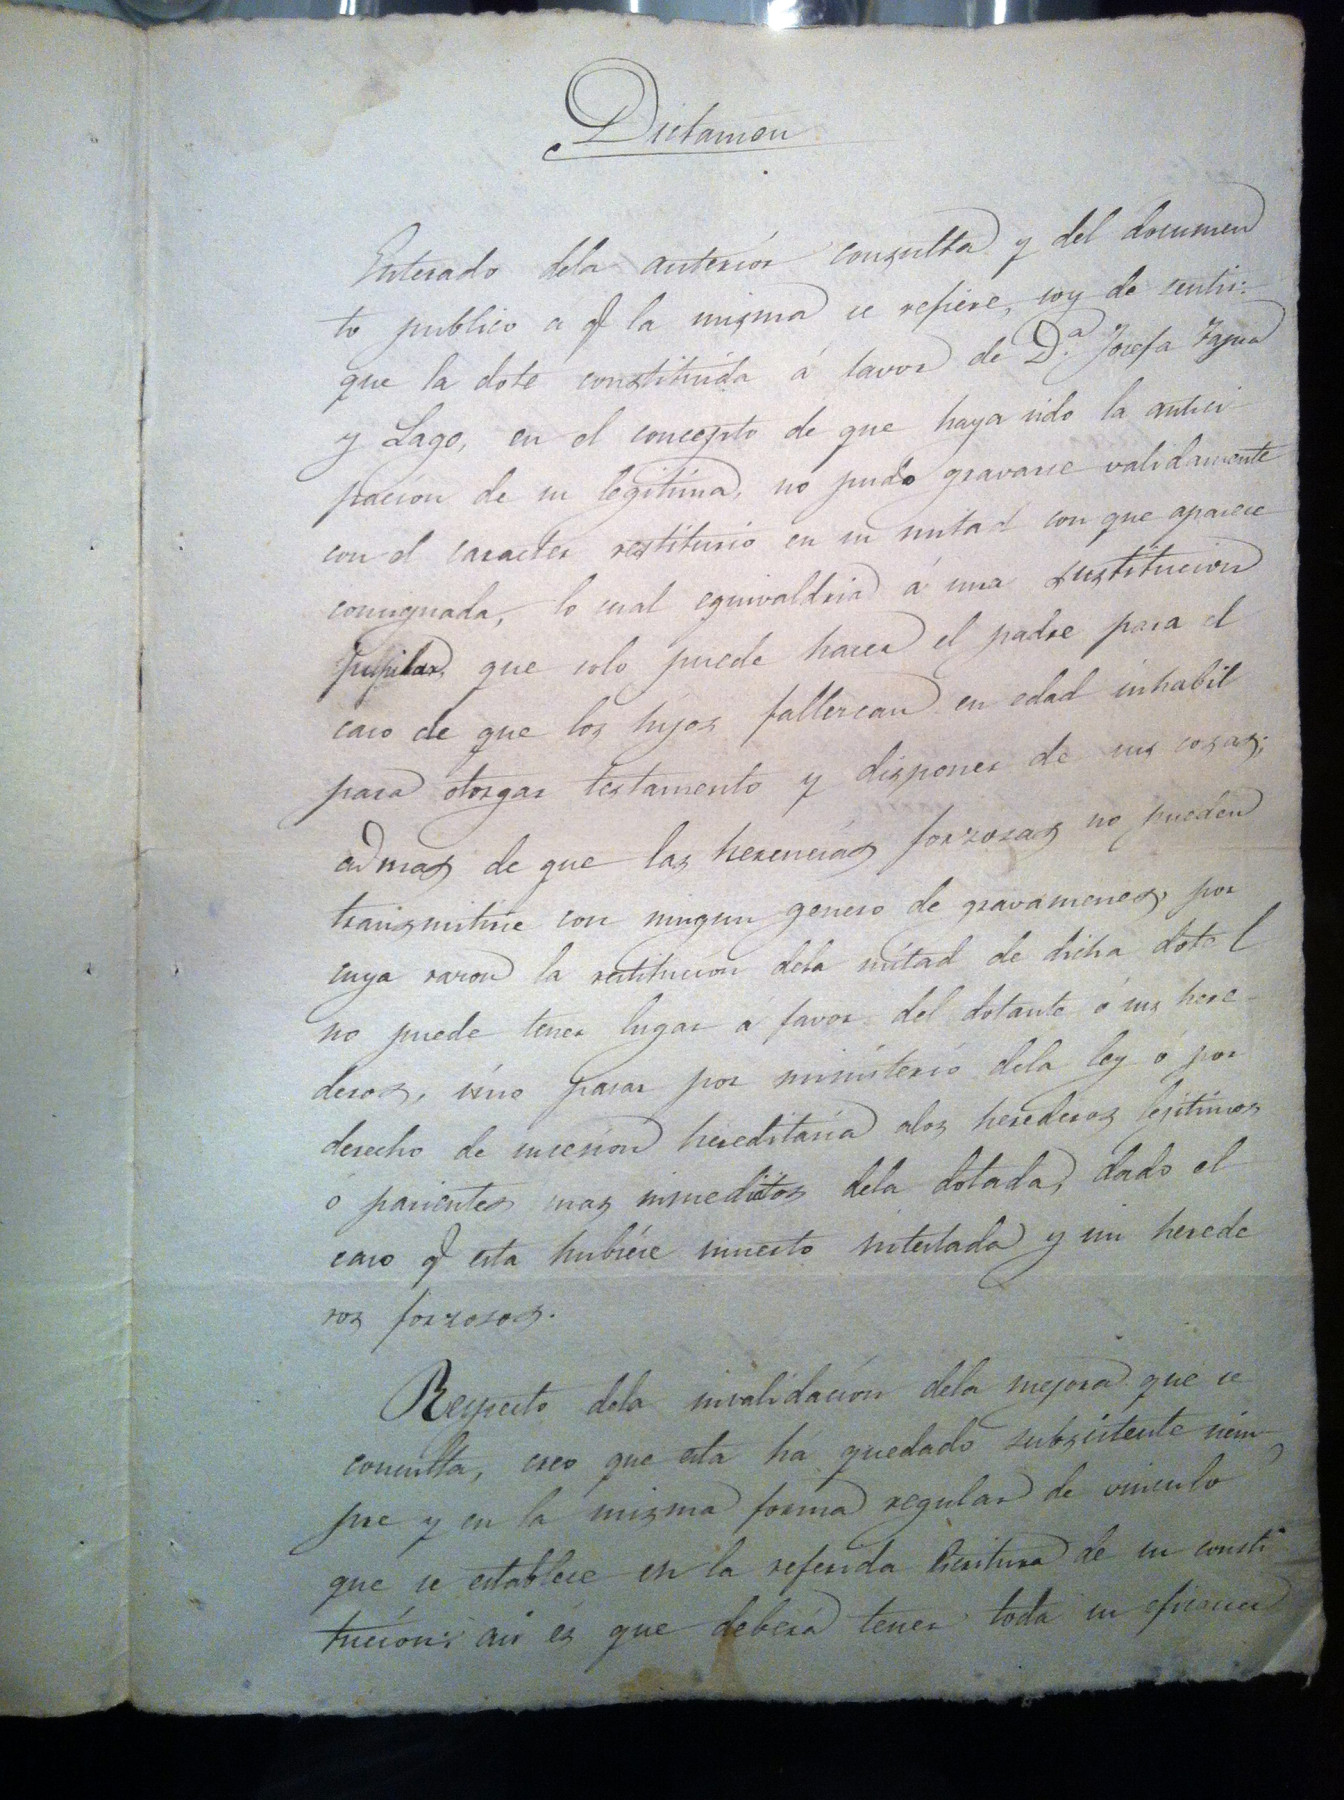 Dictamen
Enterado dela anterior consulta y del documen
to publico a q la misma se refiere, soy de sentir:
que la dote constituida á favor de D.ª Josefa
y Lago, en el concepto de que haya sido la antici
pacion de su legitima, no pudo gravarse validamente
con el caracter restitutio en su mitad con que aparece
consignada, lo cual equivaldria á una sustitucion
pupilar, que solo puede hacer el padre para el
caso de que los hijos fallezcan en edad inhabil
para otorgar testamento y disponer de sus cosas;
admas de que las herencias forzosas no pueden
transmitirse con ningun genero de gravamenes, por
cuya razon la restitucion dela mitad de dicha dote
no puede tener lugar á favor del dotante ó sus here-
deros, sino pasar por ministerio dela ley ó por
derecho de sucesion hereditaria alos herederos legitimos
ó parientes mas inmeditos dela dotada, dado el
caso q esta hubiese muerto intestada y sin herede
ros forzosos.
Respecto dela invalidación dela mejora que se
consulta, creo que esta ha quedado subsistente siem-
pre y en la misma forma regular de vinculo
que se establece en la referida Escritura de su consti
tución: asi és que deberá tener toda su eficacia